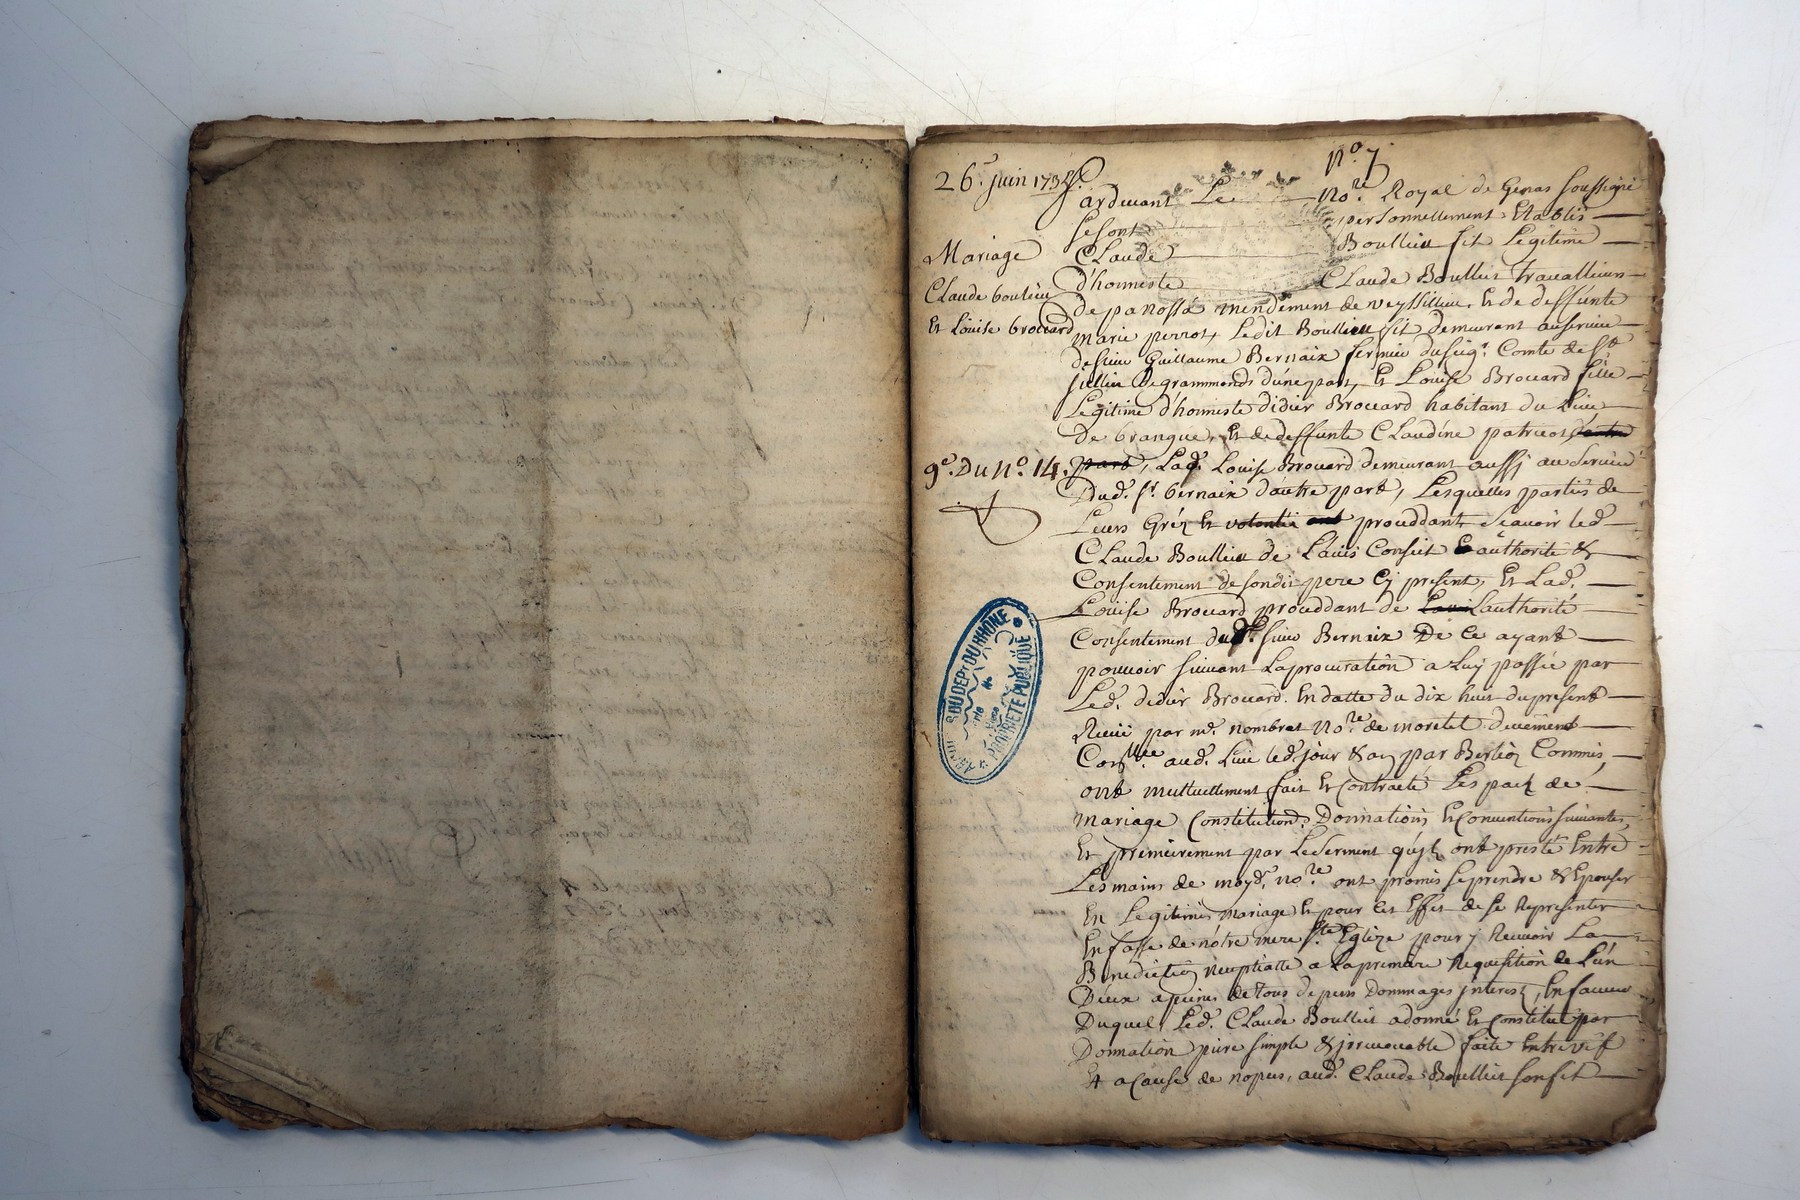 26 juin 173
No. 7
Pardevant Le No.re Royal de Genas soussigné
se sont personnellement Etablis
Mariage
Claude Boullieu fit Legitime
Claude boulieu
d'honneste Claude Boullieu travallieur
Et Louise brouard
de panossa mendement de veyssilieu, Et de deffunte
marie perrot, Ledit Boullieu fit demeurant au service
de sieur Guillaume Bernaix fermier du seigr. Comte de St
jullin Degrammonds d'une part, Et Louise Brouard fille
Legitime d'honneste didier Brouard habitant du Lieu
de brangue, Et de deffunte Claudine patricot d'autre
9e. Du No. 14.
part, Lad. Louise Brouard demeurant aussy au service
Dud. sr. bernaix d'autre part, Lesquelles parties de
Leurs Gréz Et volontée ont proceddant Scavoir led
Claude Boullieu de L'avis Conseil Et authorité &
Consentement de sondit pere Cy present, Et Lad.
Louise Brouard proceddant de L'authorité
Consentement dud. sieur Bernaix De Ce ayant
pouvoir suivant La procuration a Luy passée par
Led. didier Brouard En datte du dix huit du present
Receu par me. nombret No.re de morestel deuement
aud. Lieu led. jour & an par Bertion Commis,
ont mutuellement fait Et contracté Les pact de
mariage Constitutions Donnations Et Conventions suivantes,
Et premierement par Le serment qu'ils ont presté Entre
Les mains de moyd. no.re ont promis se prendre & Epouser
En Legitime mariage Et pour Cet Effet de se Representer
En fasse de nôtre mere Ste Eglize pour y Recevoir La
Benediction nuptialle a La premiere Requisition de L'un
D'eux a peines de tous depens Dommages jnterest, En faveur
Duquel Led. Claude Boullieu a donné Et constitué par
Donnation pure simple & jrrevocable faite Entre vif
Et a Cause de nopces, aud. Claude Boullieu son fit
DU DEPT DU RHÔNE
PROPRIÉTÉ PUBLIQUE